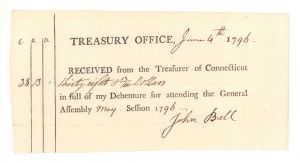 TREASURY OFFICE, June 4th 1796
RECEIVED from the Treasurer of Connecticut
thirty eight Dollars
in full of my Debenture for attending the General
Assembly May Session 1796
John Bull